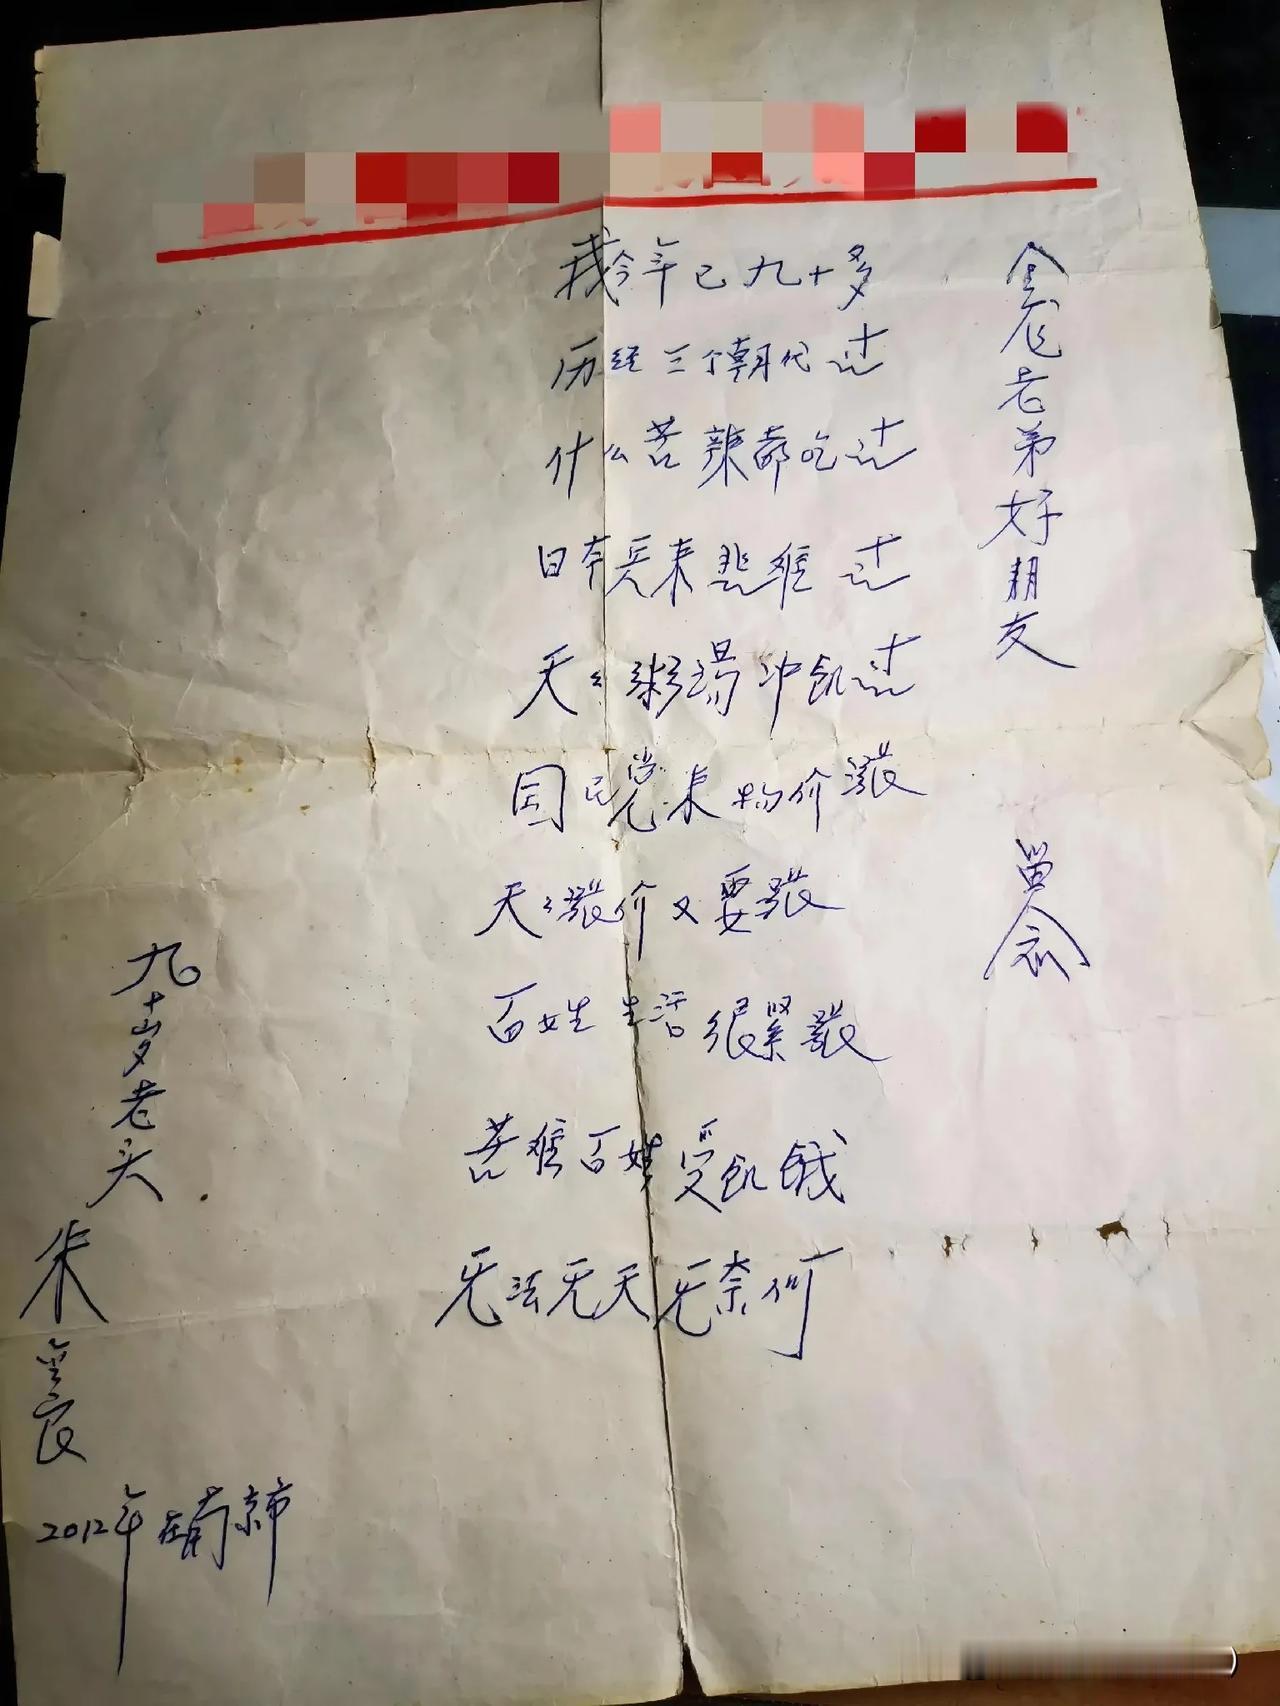 老弟好朋友
留念
我今年已九十多
历经三个朝代过
什么苦辣都吃过
日本兵来悲难过
天天粥汤冲饥过
国民党来物价涨
天天涨价又要涨
百姓生活很紧张
苦难百姓受饥饿
无法无天无奈何
九十岁老头
朱金良
2012年在南京市